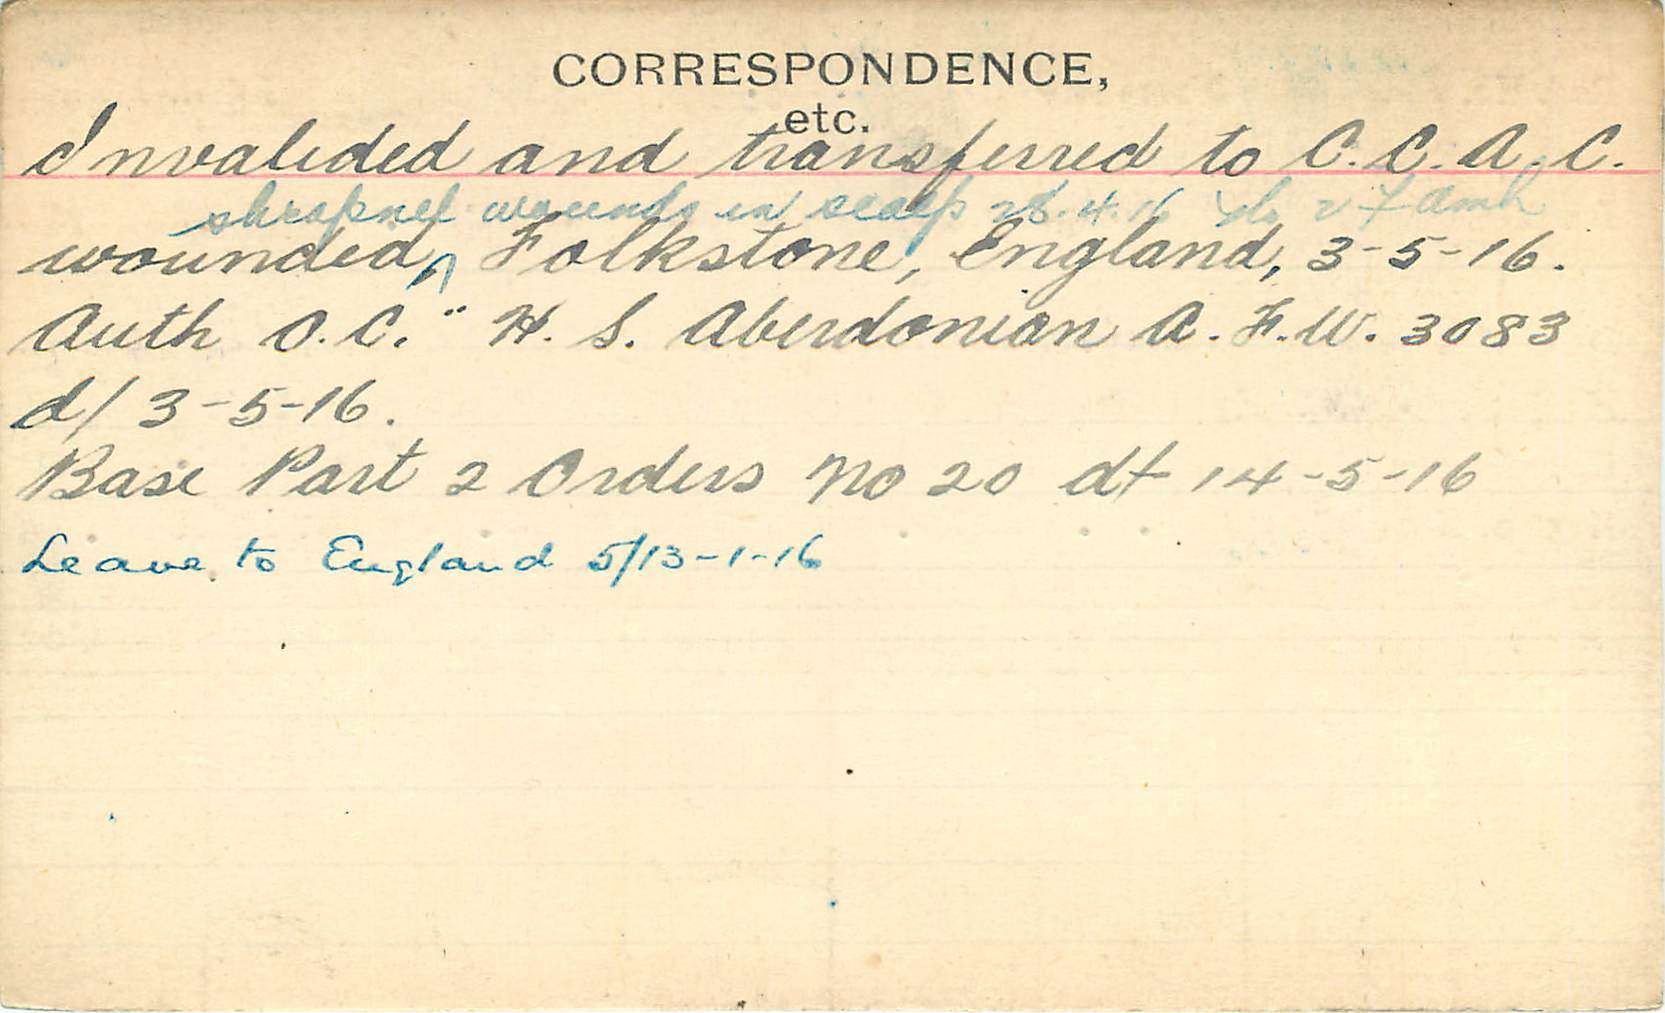 CORRESPONDENCE,
etc.
Invalided and transferred to C.C.A.C.
shrapnel wounds in scalp 28.4.16
wounded, Folkstone, England, 3-5-16.
Auth O.C. " H. S. Aberdonian A.F.W. 3083
d/ 3-5-16.
Base Part 2 Orders No 20 dt 14-5-16
Leave to England 5/13-1-16